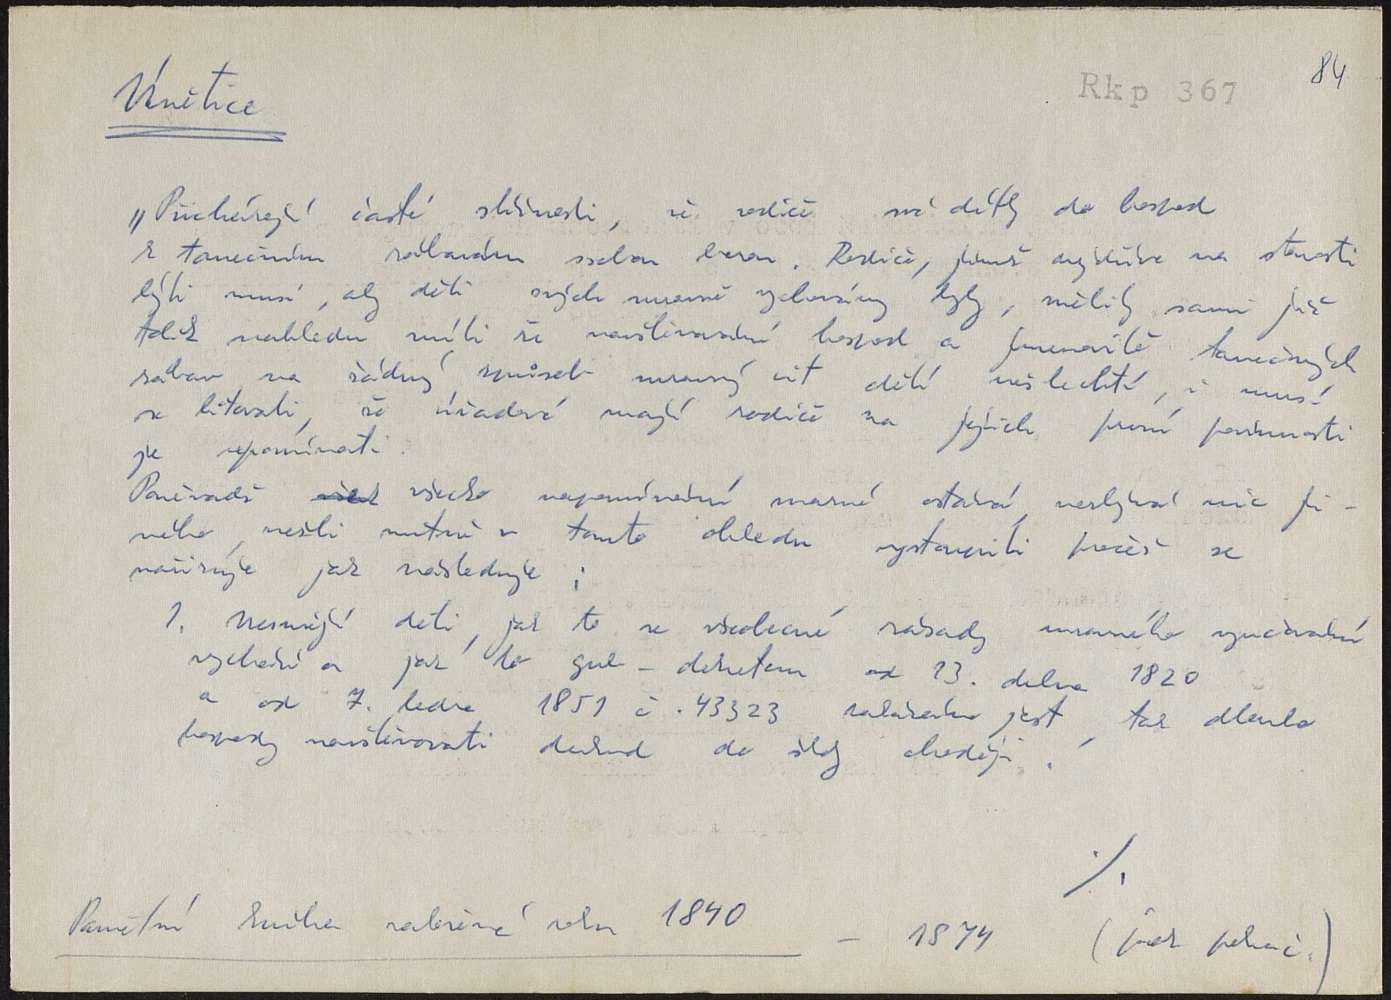 84
Rkp 367
Únětice
„Přicházejí časté stížnosti, že rodiče své dítky do hospod
k tanečním zábavám sebou berou. Rodiče, jimž nejvíce na starosti
býti musí, aby děti svých mravně vychovány byly, měliby sami již
tolik náhledu míti že navštěvování hospod a jmenovitě tanečných
zábav na žádný způsob mravný cit dětí nešlechtí, i musí
se litovati, že úřadové mají rodiče na jejich první povinnosti
je upomínati.
Poněvadž všecko napomínání marné ostává, nezbývá nic ji-
ného, nežli nutně v tomto ohledu vystoupiti pročež se
nařizuje jak následuje:
1. Nesmějí děti, jak to ze všeobecné zásady mravného vyučování
vychází a jak to gub-dekretem od 13. dubna 1820
a od 7. ledna 1851 č. 43323 zakázáno jest, tak dlouho
hospody navštěvovati dokud do školy chodějí.
./.
Pamětní kniha založená roku 1840 – 1874 (jinak pokrač.)